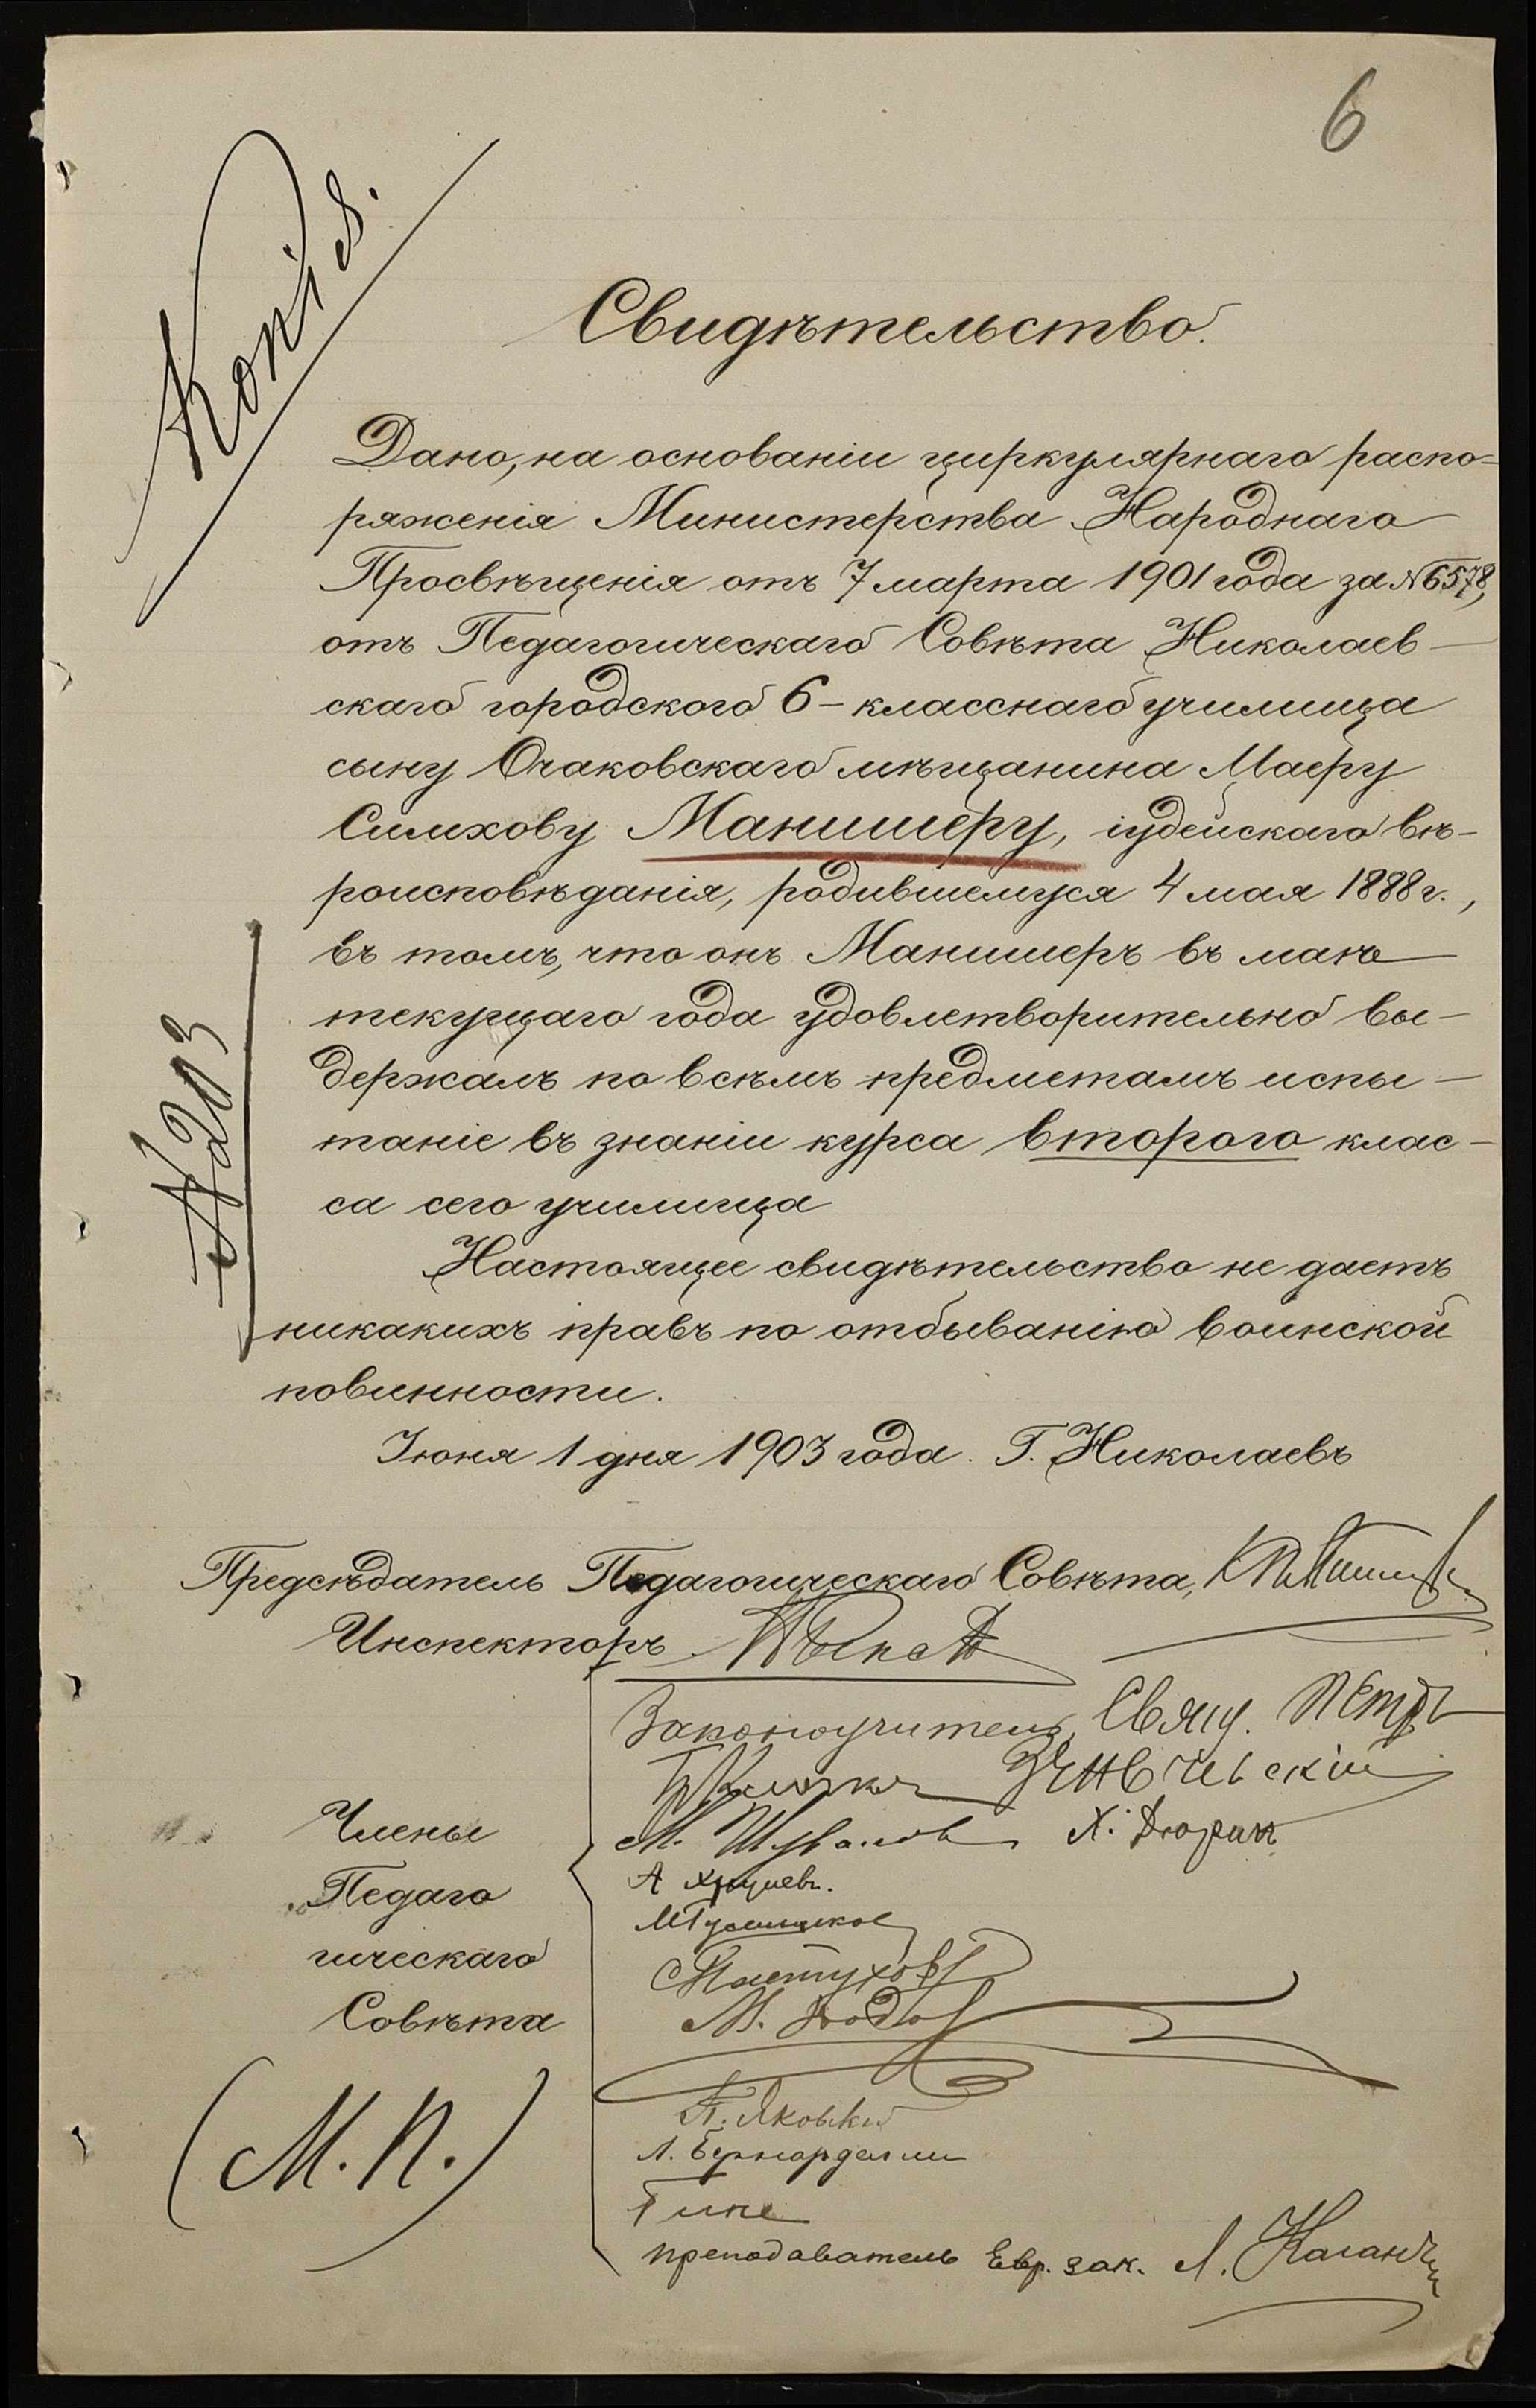 6
Копія.
Свидѣтельство.
Дано, на основаніи циркулярнаго распо-
ряженія Министерства Народнаго
Просвѣщенія отъ 7 марта 1901 года за № 6578,
отъ Педагогическаго Совѣта Николаев-
скаго городского 6-класснаго училища
сыну Очаковскаго мѣщанина Маеру
Симхову Маншперу, іудейскаго вѣ-
роисповѣданія, родившемуся 4 мая 1888 г.,
въ томъ, что онъ Маншперъ въ маѣ
текущаго года удовлетворительно вы-
держалъ по всѣмъ предметамъ испы-
таніе въ знаніи курса второго клас-
са сего училища
Настоящее свидѣтельство не даетъ
никакихъ правъ по отбыванію воинской
повинности.
Іюня 1 дня 1903 года. Г. Николаевъ
№ 203
Предсѣдатель Педагогическаго Совѣта,
Инспекторъ
Законоучитель, Свящ. Петръ
М. Шувалов Х. Дюрин
А Хрущевъ.
С Пастуховъ
Члены
Педаго
гическаго
Совѣта
(М. П.)
П. Яковкин
Л. Бернардацци
преподаватель Евр. зак. Л. Каган